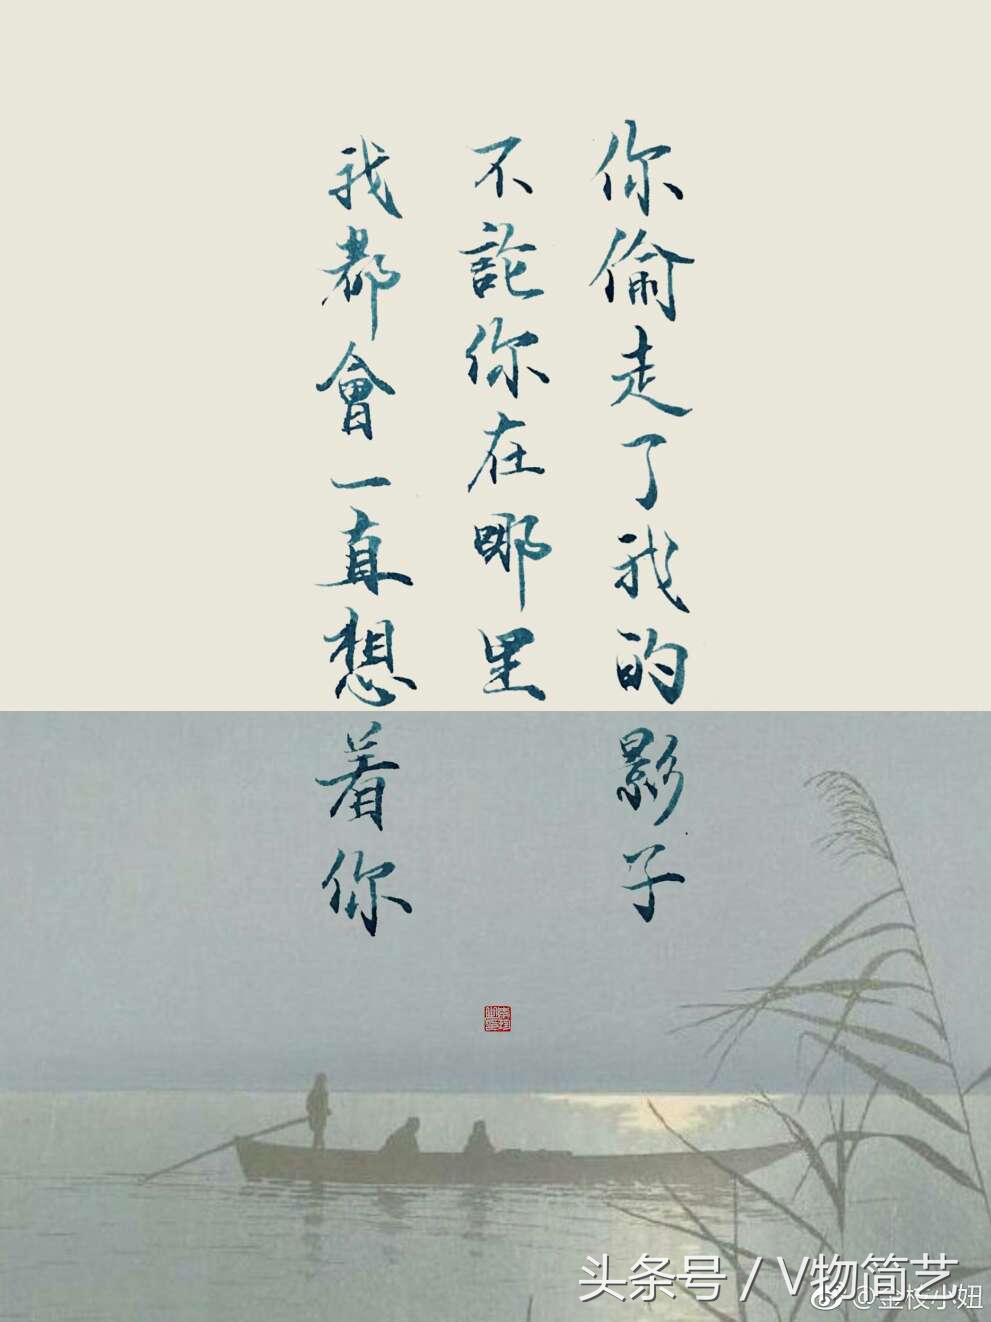 你偷走了我的影子
不論你在哪里
我都會一直想着你
头条号 / V物简艺
@金枝小妞